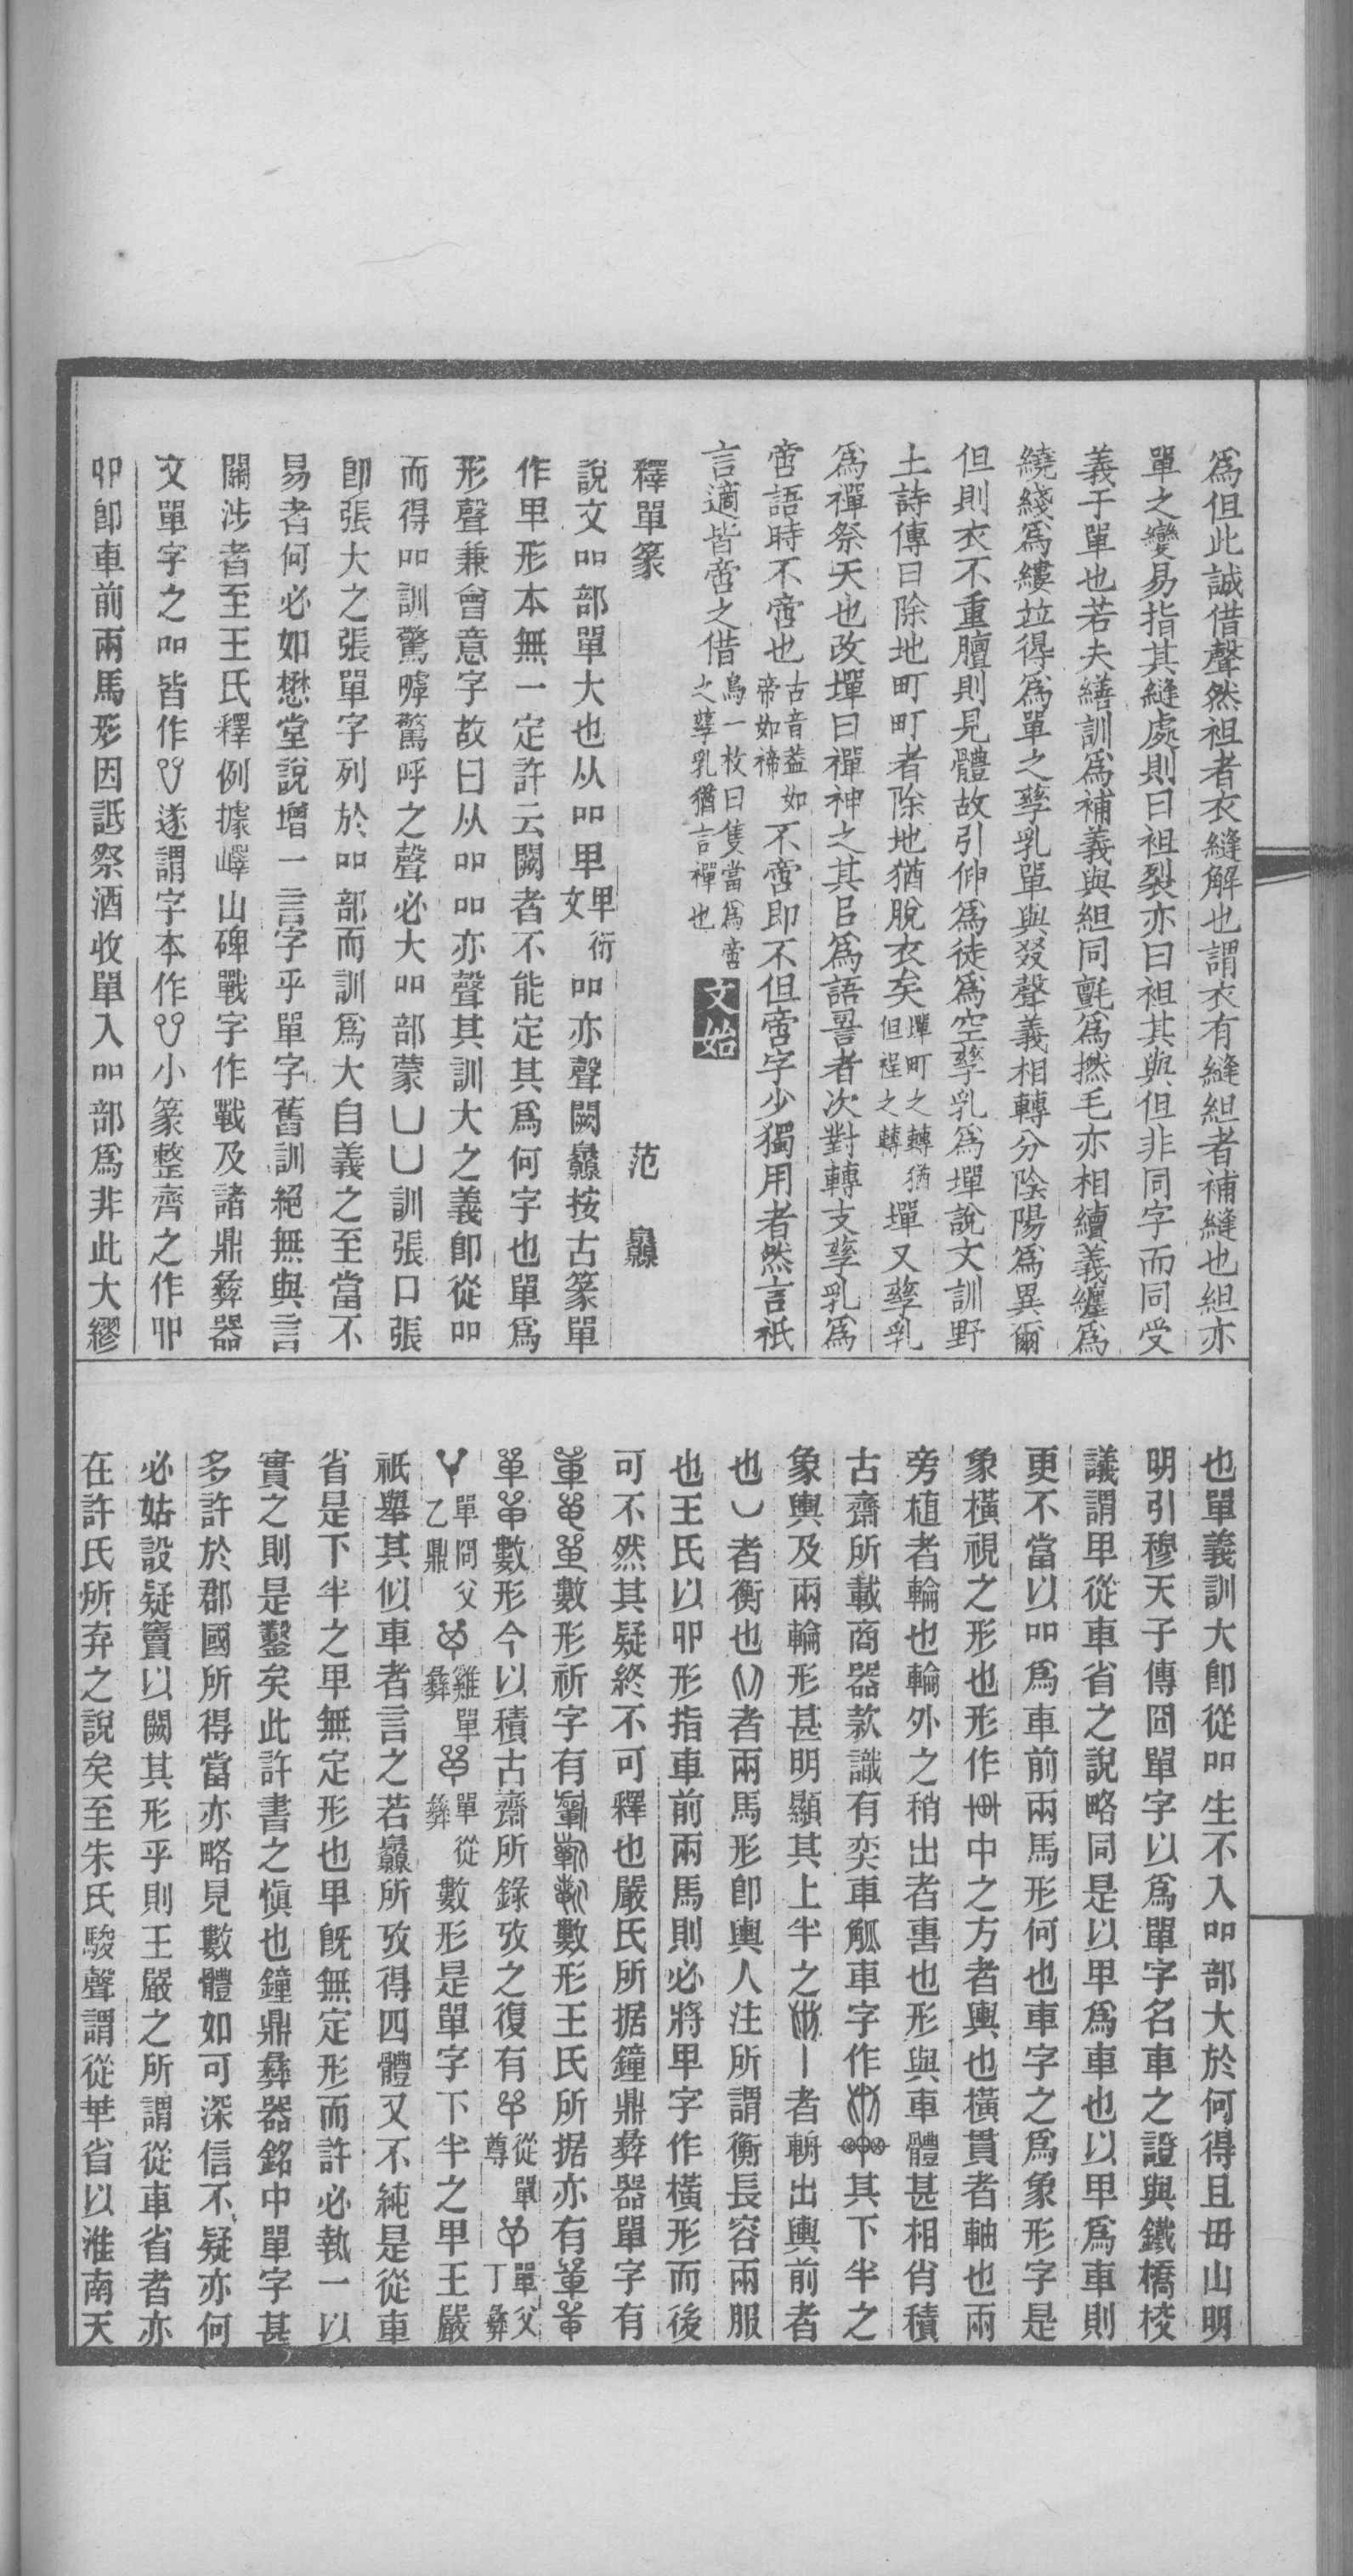 爲但此誠借聲然袒者衣縫解也謂衣有縫組者補縫也組亦
單之變易指其縫處則曰袒裂亦曰袒其與但非同字而同受
義于單也若夫繕訓爲補義與組同氈爲撚毛亦相續義纏爲
繞綫爲縷竝得爲單之孳乳單與叕聲義相轉分陰陽爲異爾
但則衣不重膻則見體故引伸爲徒爲空孳乳爲墠說文訓野
土詩傳曰除地町町者除地猶脫衣矣墠町之轉猶但裎之轉墠又孳乳
爲禪祭天也改墠曰禪神之其㠯爲語詈者次對轉支孳乳爲
啻語時不啻也古音蓋如帝如禘不啻即不但啻字少獨用者然言祇
言適皆啻之借鳥一枚曰隻當爲啻之孳乳猶言禪也文始
釋單篆　范　鱻
說文吅部單大也从吅甲甲衍文吅亦聲闕鱻按古篆單
作甲形本無一定許云闕者不能定其爲何字也單爲
形聲兼會意字故曰从吅吅亦聲其訓大之義卽從吅
而得吅訓驚嘑驚呼之聲必大吅部蒙凵凵訓張口張
卽張大之張單字列於吅部而訓爲大自義之至當不
易者何必如懋堂說增一言字乎單字舊訓絕無與言
關涉者至王氏釋例據嶧山碑戰字作戰及諸鼎彝器
文單字之吅皆作遂謂字本作小篆整齊之作吅
吅卽車前兩馬形因詆祭酒收單入吅部爲非此大繆
也單義訓大卽從吅生不入吅部大於何得且毌山明
明引穆天子傳囧單字以爲單字名車之證與鐵橋校
議謂甲從車省之說略同是以甲爲車也以甲爲車則
更不當以吅爲車前兩馬形何也車字之爲象形字是
象橫視之形也形作中之方者輿也橫貫者軸也兩
旁植者輪也輪外之稍出者軎也形與車體甚相肖積
古齋所載商器款識有奕車觚車字作其下半之
象輿及兩輪形甚明顯其上半之丨者輈出輿前者
也者衡也者兩馬形卽輿人注所謂衡長容兩服
也王氏以吅形指車前兩馬則必將甲字作橫形而後
可不然其疑終不可釋也嚴氏所据鐘鼎彝器單字有
數形祈字有數形王氏所据亦有
數形今以積古齋所錄攷之復有從單尊單父丁彝
單冏父乙鼎雞單彝單從彝數形是單字下半之甲王嚴
祇舉其似車者言之若鱻所攷得四體又不純是從車
省是下半之甲無定形也甲旣無定形而許必執一以
實之則是鑿矣此許書之愼也鐘鼎彝器銘中單字甚
多許於郡國所得當亦略見數體如可深信不疑亦何
必姑設疑竇以闕其形乎則王嚴之所謂從車省者亦
在許氏所弃之說矣至朱氏駿聲謂從𠦒省以淮南天